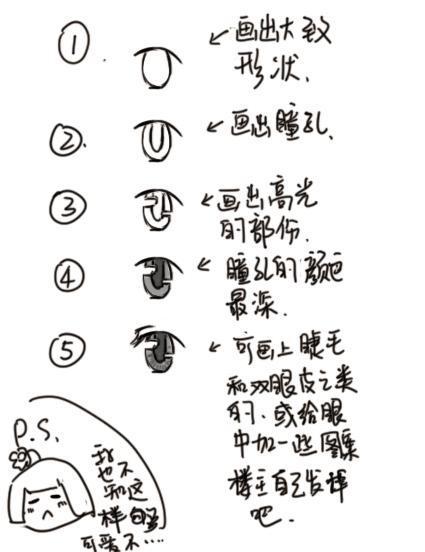 ①
←画出大致
形状.
②.
←画出瞳孔.
③
←画出高光
的部份.
④
←瞳孔的颜色
最深.
⑤
←可画上睫毛
和双眼皮之类
的、或给眼
中加一些图案
楼主自己发挥
吧.
P.S.
我
也不
知这
样
可爱不....